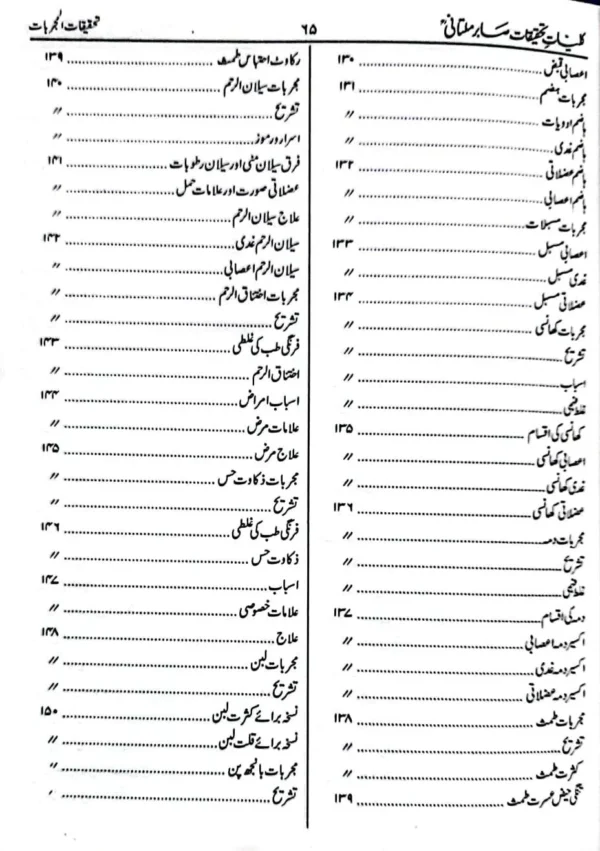 کلیات تحقیقات صابر ملتانیؒ ۶۵ تحقیقات المجربات
اعصابی قبض ۱۳۰
مجربات ہضم ۱۳۱
ہاضم ادویات 〃
ہاضم غدی 〃
ہاضم عضلاتی ۱۳۲
ہاضم اعصابی 〃
مجربات مسہلات 〃
اعصابی مسہل ۱۳۳
غدی مسہل 〃
عضلاتی مسہل ۱۳۴
مجربات کھانسی 〃
تشریح 〃
اسباب 〃
غلط فہمی 〃
کھانسی کی اقسام ۱۳۵
اعصابی کھانسی 〃
غدی کھانسی 〃
عضلاتی کھانسی ۱۳۶
مجربات دمہ 〃
تشریح 〃
غلط فہمی 〃
دمہ کی اقسام ۱۳۷
اکسیر دمہ اعصابی 〃
اکسیر دمہ غدی 〃
اکسیر دمہ عضلاتی 〃
مجربات طمث ۱۳۸
تشریح 〃
کثرت طمث 〃
تنگی حیض عسرت طمث ۱۳۹
رکاوٹ احتباس طمث ۱۳۹
مجربات سیلان الرحم ۱۴۰
تشریح 〃
اسرار و رموز 〃
فرق سیلان منی اور سیلان رطوبات ۱۴۱
عضلاتی صورت اور علامات حمل 〃
علاج سیلان الرحم 〃
سیلان الرحم غدی ۱۴۲
سیلان الرحم اعصابی 〃
مجربات اختناق الرحم 〃
تشریح 〃
فرنگی طب کی غلطی ۱۴۳
اختناق الرحم 〃
اسباب امراض ۱۴۴
علامات مرض 〃
علاج مرض ۱۴۵
مجربات ذکاوت حس 〃
تشریح 〃
فرنگی طب کی غلطی ۱۴۶
ذکاوت حس 〃
اسباب ۱۴۷
علامات خصوصی 〃
علاج ۱۴۸
مجربات لبن 〃
تشریح 〃
نسخہ برائے کثرت لبن ۱۵۰
نسخہ برائے قلت لبن 〃
مجربات بانجھ پن 〃
تشریح 〃